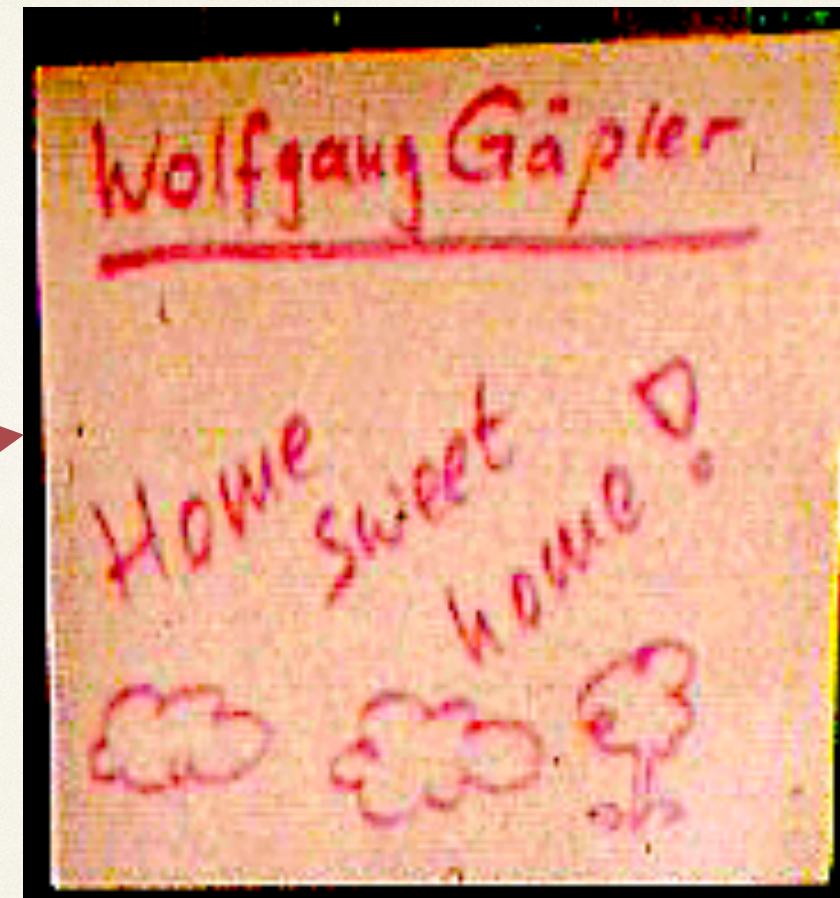 Wolfgang Gäpler
Home
sweet
home!